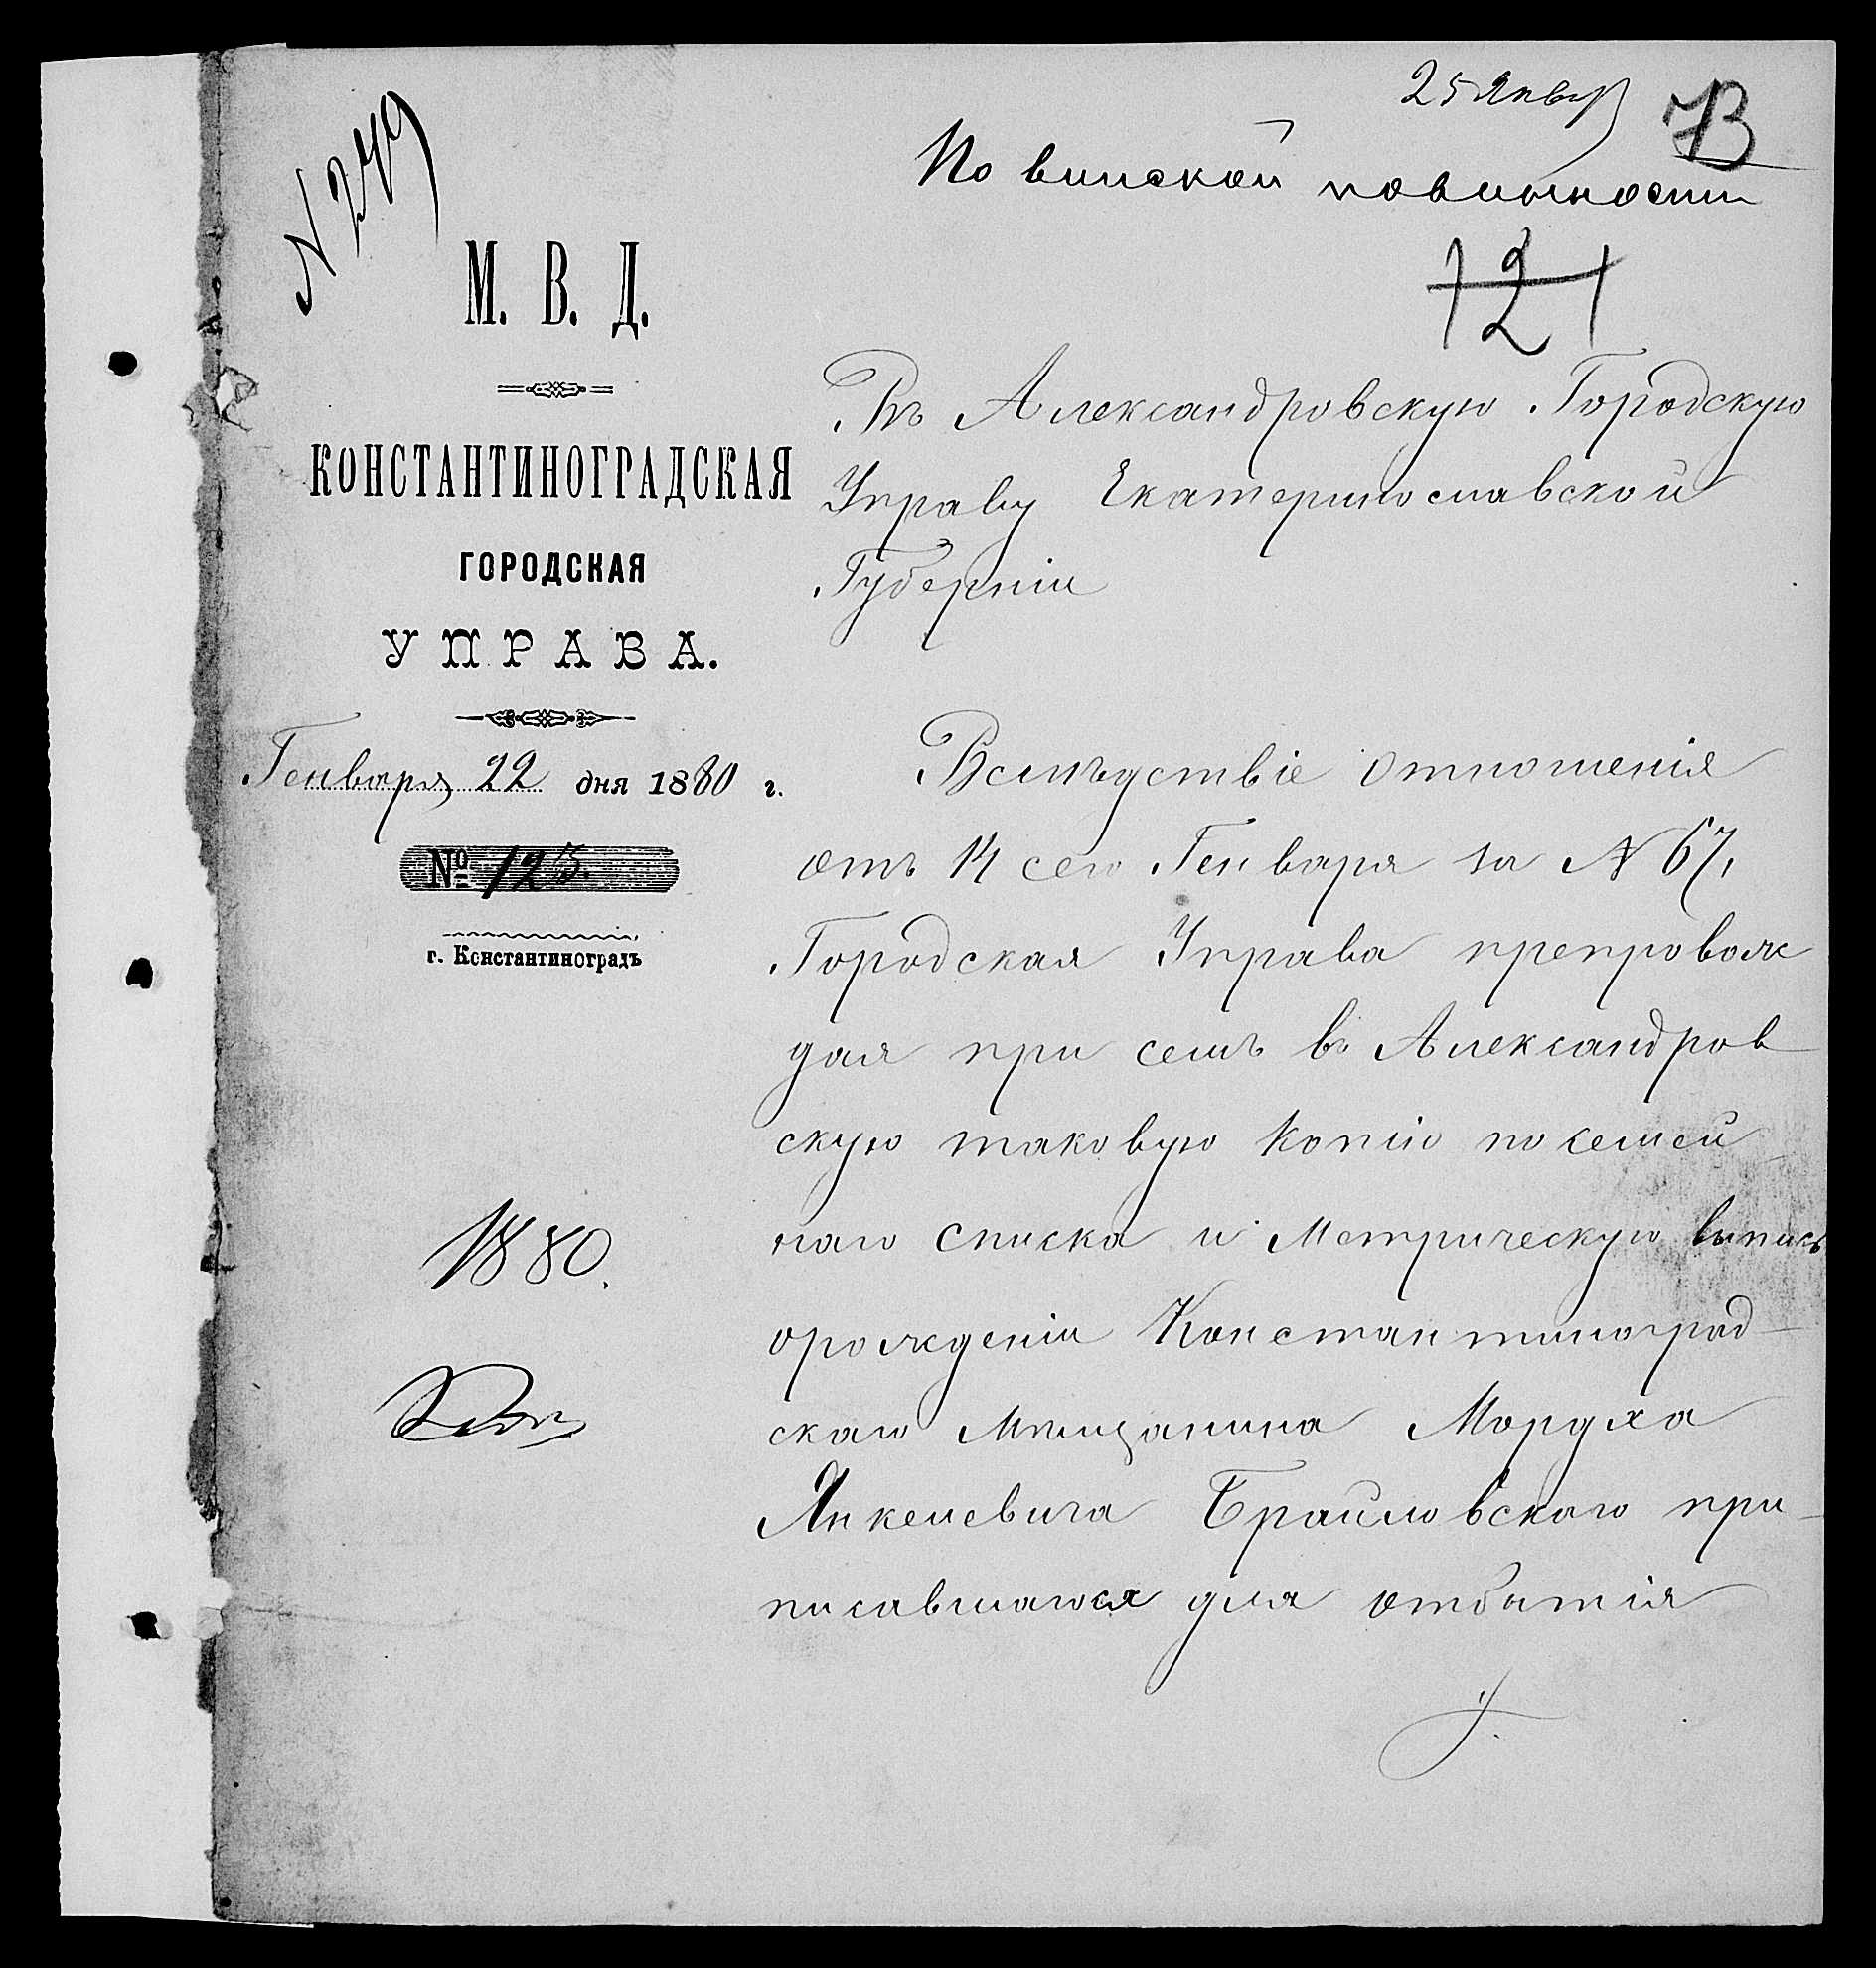 25 Январ
73
По воинской повинности
N 279
121
М. В. Д.
КОНСТАНТИНОГРАДСКАЯ
ГОРОДСКАЯ
УПРАВА.
Генваря 22 дня 1880 г.
№ 125.
г. Константиноградъ
1880.
Въ Александровскую Городскую
Управу Екатеринославской
Губерніи
Вслѣдствіе отношенія
отъ 14 сего Генваря за N 67,
Городская Управа препровож
дая при семъ въ Александров
скую таковую копію посемей
наго списка и Метрическую выпись
орожденіи Константиноград-
скаго Мѣщанина Мордха
Янкелевича Браиловского при-
писавшагося для отбытія